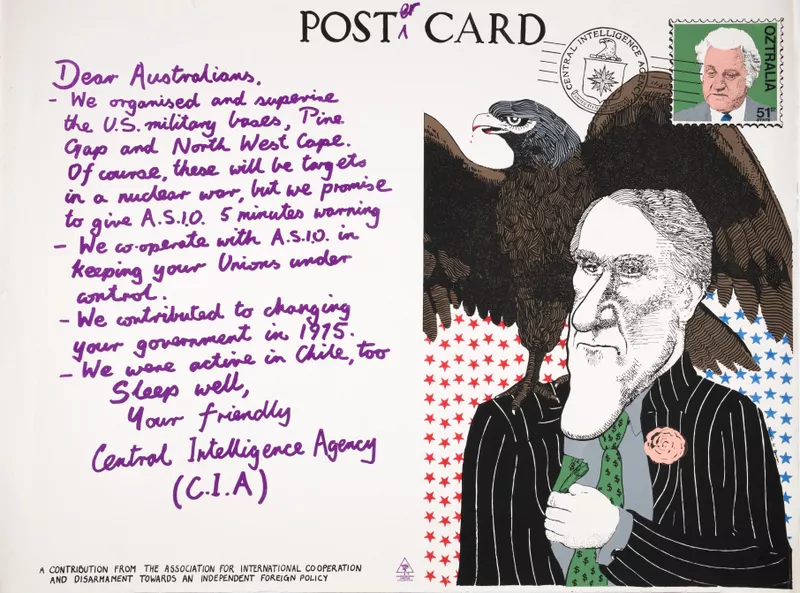 POST er CARD
CENTRAL INTELLIGENCE AGENCY
OZTRALIA
51st
Dear Australians.
- We organised and supervise
the U.S. military bases, Pine
Gap and North West Cape.
Of course, these will be targets
in a nuclear war, but we promise
to give A.S.I.O. 5 minutes warning
- We co-operate with A.S.I.O. in
keeping your Unions under
control.
- We contributed to changing
your government in 1975.
- We were active in Chile, too
Sleep well,
Your friendly
Central Intelligence Agency
(C.I.A)
A CONTRIBUTION FROM THE ASSOCIATION FOR INTERNATIONAL CO-OPERATION
AND DISARMAMENT TOWARDS AN INDEPENDENT FOREIGN POLICY